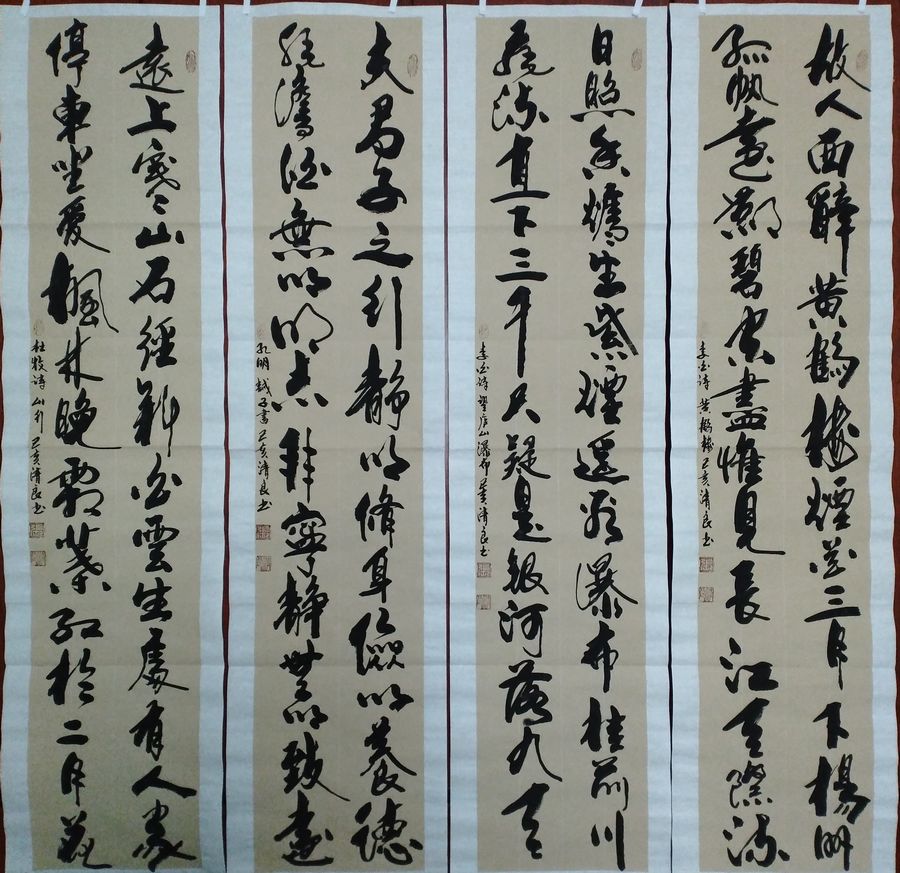 故人西辭黄鶴樓煙花三月下楊州
孤帆遠影碧空盡惟見長江天際流
李白诗 黄鶴樓 己亥清良书
日照香爐生紫煙遥看瀑布挂前川
飛流直下三千尺疑是銀河落九天
李白诗望庐山瀑布黄清良书
夫君子之行静以修身儉以養德
非澹泊無以明志非寧静無以致遠
孔明誡子書己亥清良书
遠上寒山石徑斜白雲生處有人家
停車坐愛楓林晚霜葉紅於二月花
杜牧诗山行己亥清良书